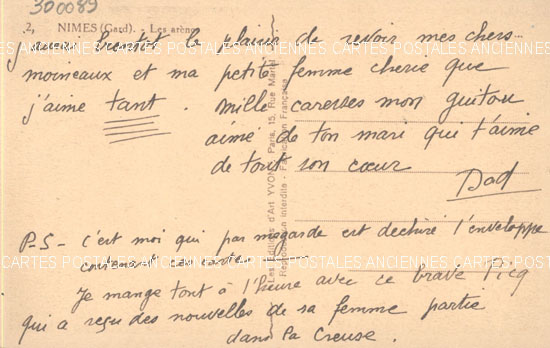 300089
2, NIMES (Gard). - Les arènes
j'aurai bientôt le plaisir de revoir mes chers
moineaux et ma petite femme cherie que
j'aime tant. Mille caresses mon guitou
aimé de ton mari qui t'aime
de tout son cœur
Dad
P-S- c'est moi qui par megarde est dechiré l'enveloppe
contenant ces cartes
Je mange tout à l'heure avec ce brave Picq
qui a reçu des nouvelles de sa femme partie
dans la Creuse.
Les Editions d'Art YVON, Paris, 15, Rue Martel
Reproduction interdite - Fabrication Française
CARTES POSTALES ANCIENNES CARTES POSTALES ANCIENNES